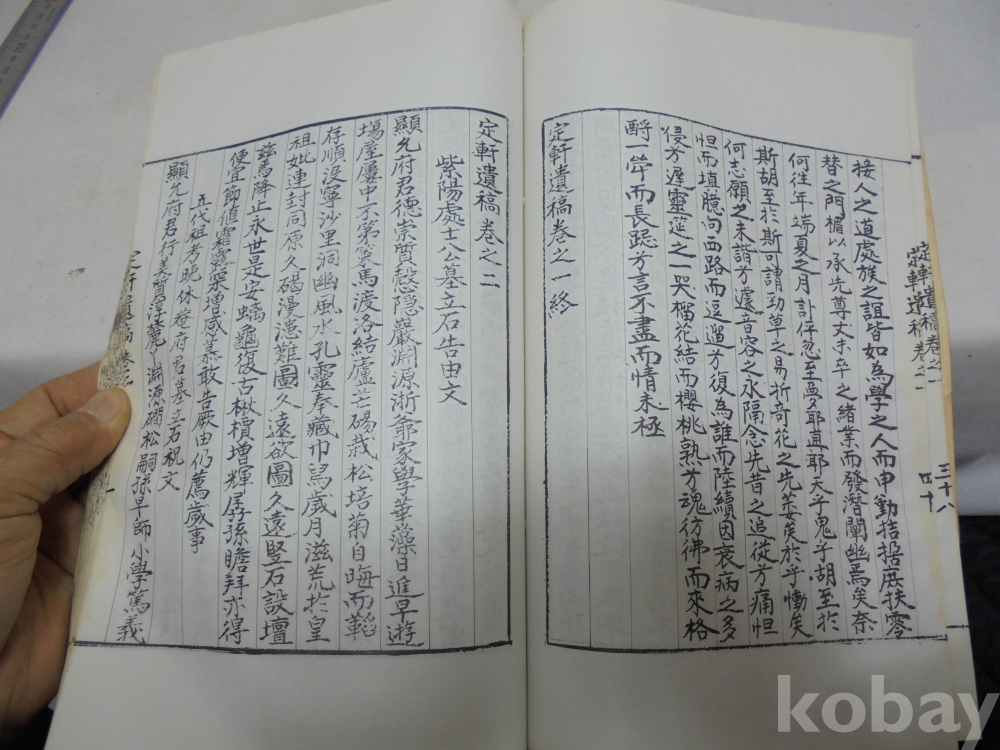 接人之道處族之誼皆如為學之人而申勤拮据庶扶零
替之門楣以承先尊丈未卒之緒業而發潛闡幽焉矣奈
何往年端夏之月訃伻忽至夢耶眞耶天乎鬼乎胡至於
斯胡至於斯可謂勁草之易折奇花之先萎矣於乎慟矣
何志願之未諧兮遽音容之永隔念先昔之追從兮痛怛
怛而塡臆向西路而逗遛兮復為誰而陸續因衰病之多
侵兮遲靈筵之一哭榴花結而櫻桃熟兮魂彷彿而來格
酹一斝而長跽兮言不盡而情未極
定軒遺稿卷之一終
定軒遺稿 卷之一
三十八
四十
定軒遺稿 卷之二
紫陽處士公墓立石告由文
顯允府君德崇質慤隱巖淵源浙 家學華藻日進早遊
場屋屢中不第策馬渡洛結廬芒碭栽松培菊自晦而韜
存順沒寧沙里洞幽風水孔靈奉藏巾舃歲月滋荒於皇
祖妣連封同原久碣漫漶難圖久遠欲圖久遠竪石設壇
玆焉降止永世是安螭龜復古楸檟增輝孱孫瞻拜亦得
便宜節值霜露渠增感慕敢告厥由仍薦歲事
五代祖考晩休菴府君墓立石祝文
顯允府君行美質淳麓 淵源磵松嗣孫早師小學篤義
定軒遺稿 卷之
kobay